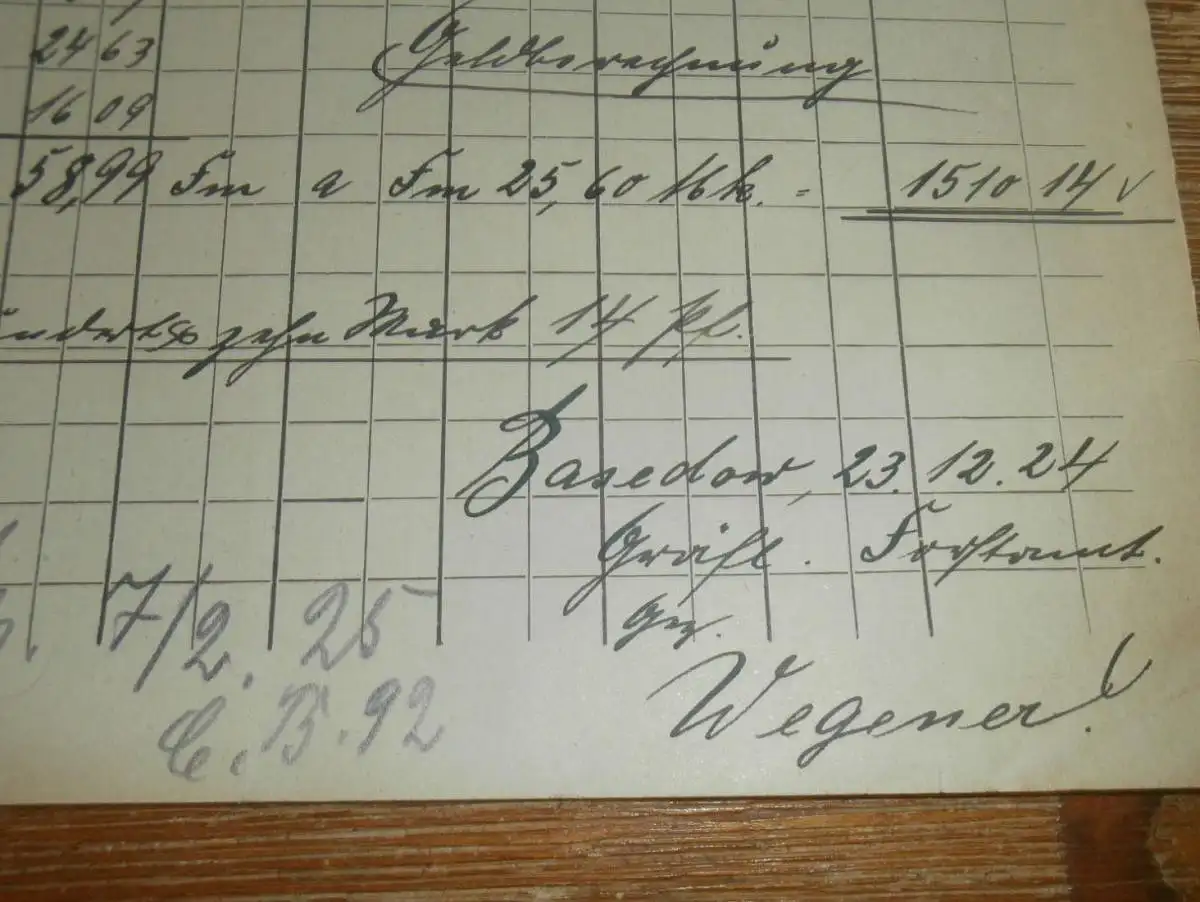 24 63
Geldberechnung
16 09
58,99 Fm a Fm 25,60 Mk. = 1510 14 ✓
hundert zehn Mark 14 Pf.
Basedow, 23. 12. 24
Gräfl. Forstamt.
gez.
Wegener!
7/2. 25
C. B. 92